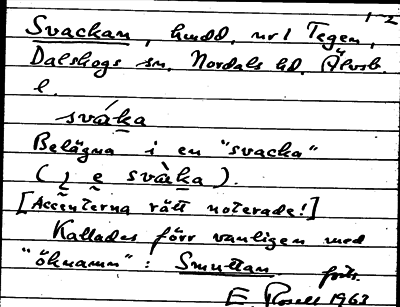 1-2
Svackan, hmdd. nr 1 Tegen,
Dalskogs sn. Nordals hd. Älvsb.
l.
sváka
Belägna i en "svacka"
(i e svàka).
[Accenterna rätt noterade!]
Kallades förr vanligen med
"öknamn": Smuttan forts.
E. Rosell 1963